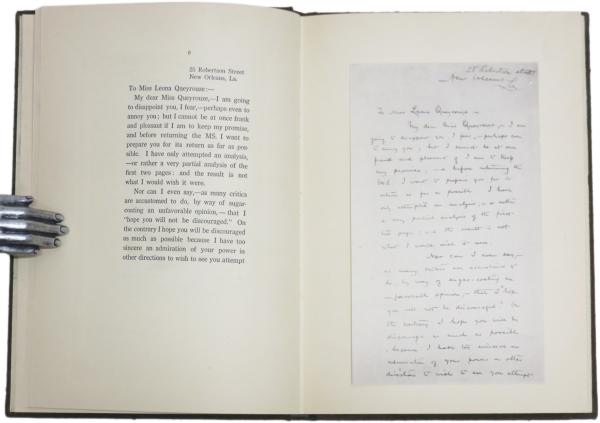 6
25 Robertson Street
New Orleans, La.
To Miss Leona Queyrouze:—
My dear Miss Queyrouze,—I am going
to disappoint you, I fear,—perhaps even to
annoy you; but I cannot be at once frank
and pleasant if I am to keep my promise,
and before returning the MS. I want to
prepare you for its return as far as pos-
sible. I have only attempted an analysis,
—or rather a very partial analysis of the
first two pages: and the result is not
what I would wish it were.
Nor can I even say,—as many critics
are accustomed to do, by way of sugar-
coating an unfavorable opinion, — that I
"hope you will not be discouraged." On
the contrary I hope you will be discouraged
as much as possible because I have too
sincere an admiration of your power in
other directions to wish to see you attempt
25 Robertson street
New Orleans
La
To Miss Leona Queyrouze —
My dear Miss Queyrouze, — I am
going to disappoint you I fear, — perhaps even
to annoy you; but I cannot be at once
frank and pleasant if I am to keep
my promise; and before returning the
MS. I want to prepare you for its
return as far as possible. I have
only attempted an analysis, — or rather
a very partial analysis of the first
two pages: and the result is not
what I would wish it were.
Nor can I even say, —
as many critics are accustomed to
do, by way of sugar-coating an
unfavorable opinion, — that I "hope
you will not be discouraged." On
the contrary I hope you will be
discouraged as much as possible
because I have too sincere an
admiration of your power in other
directions to wish to see you attempt